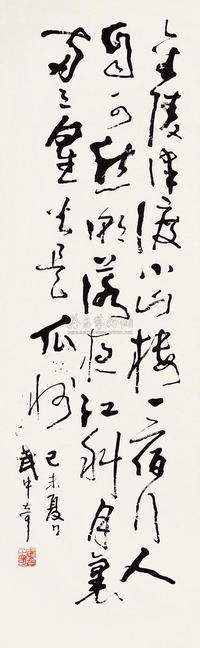 金陵津渡小山楼一宿行人
自可愁潮落夜江斜月裏
两三星火是瓜洲
己未夏日
武中奇